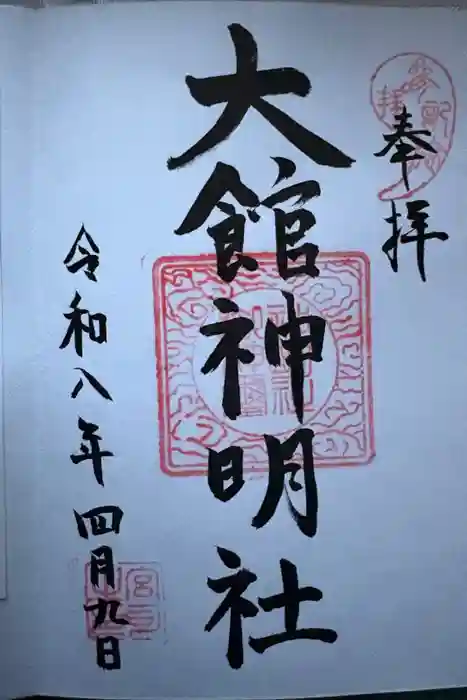 奉拝
大館神明社
令和八年四月九日